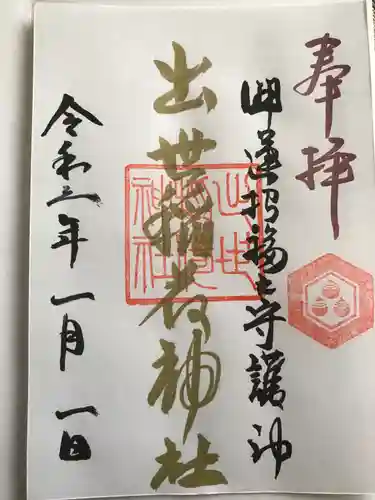 奉拝
開運招福之守護神
出世稲荷神社
令和三年一月一日
出世稲荷神社